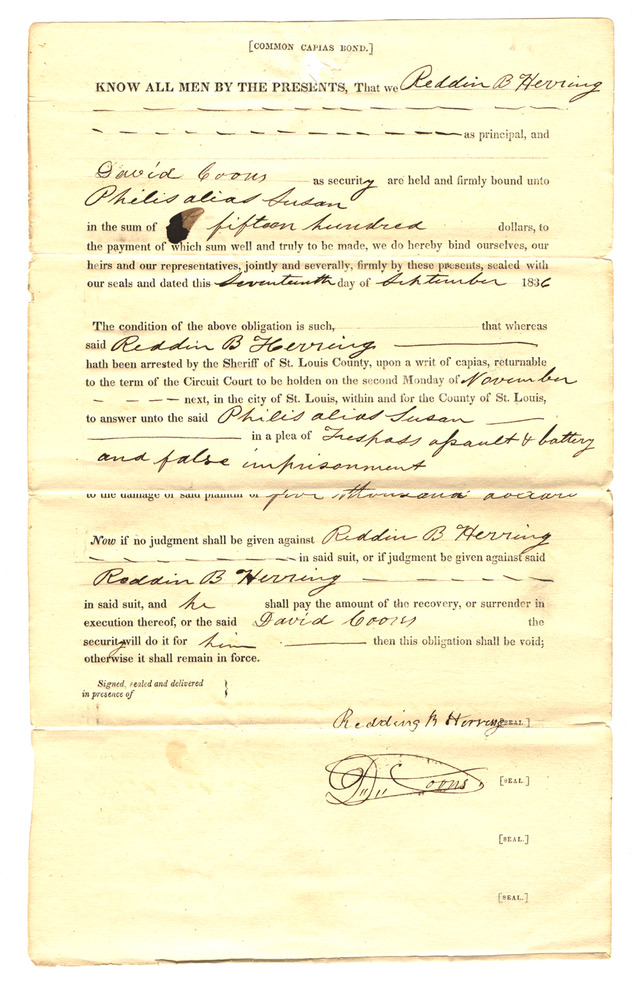 [COMMON CAPIAS BOND.]
KNOW ALL MEN BY THE PRESENTS, That we Reddin B Herring
as principal, and
David Coons as security are held and firmly bound unto
Philis alias Susan
in the sum of fifteen hundred dollars, to
the payment of which sum well and truly to be made, we do hereby bind ourselves, our
heirs and our representatives, jointly and severally, firmly by these presents, sealed with
our seals and dated this Seventeenth day of September 1836
The condition of the above obligation is such, that whereas
said Reddin B Herring
hath been arrested by the Sheriff of St. Louis County, upon a writ of capias, returnable
to the term of the Circuit Court to be holden on the second Monday of November
next, in the city of St. Louis, within and for the County of St. Louis,
to answer unto the said Philis alias Susan
in a plea of Trespass assault & battery
and false imprisonment
to the damage of said plaintiff of five thousand dollars
Now if no judgment shall be given against Reddin B Herring
in said suit, or if judgment be given against said
Reddin B Herring
in said suit, and he shall pay the amount of the recovery, or surrender in
execution thereof, or the said David Coons the
security will do it for him then this obligation shall be void;
otherwise it shall remain in force.
Signed, sealed and delivered
in presence of
Redding B Herring [SEAL.]
D. Coons [SEAL.]
[SEAL.]
[SEAL.]